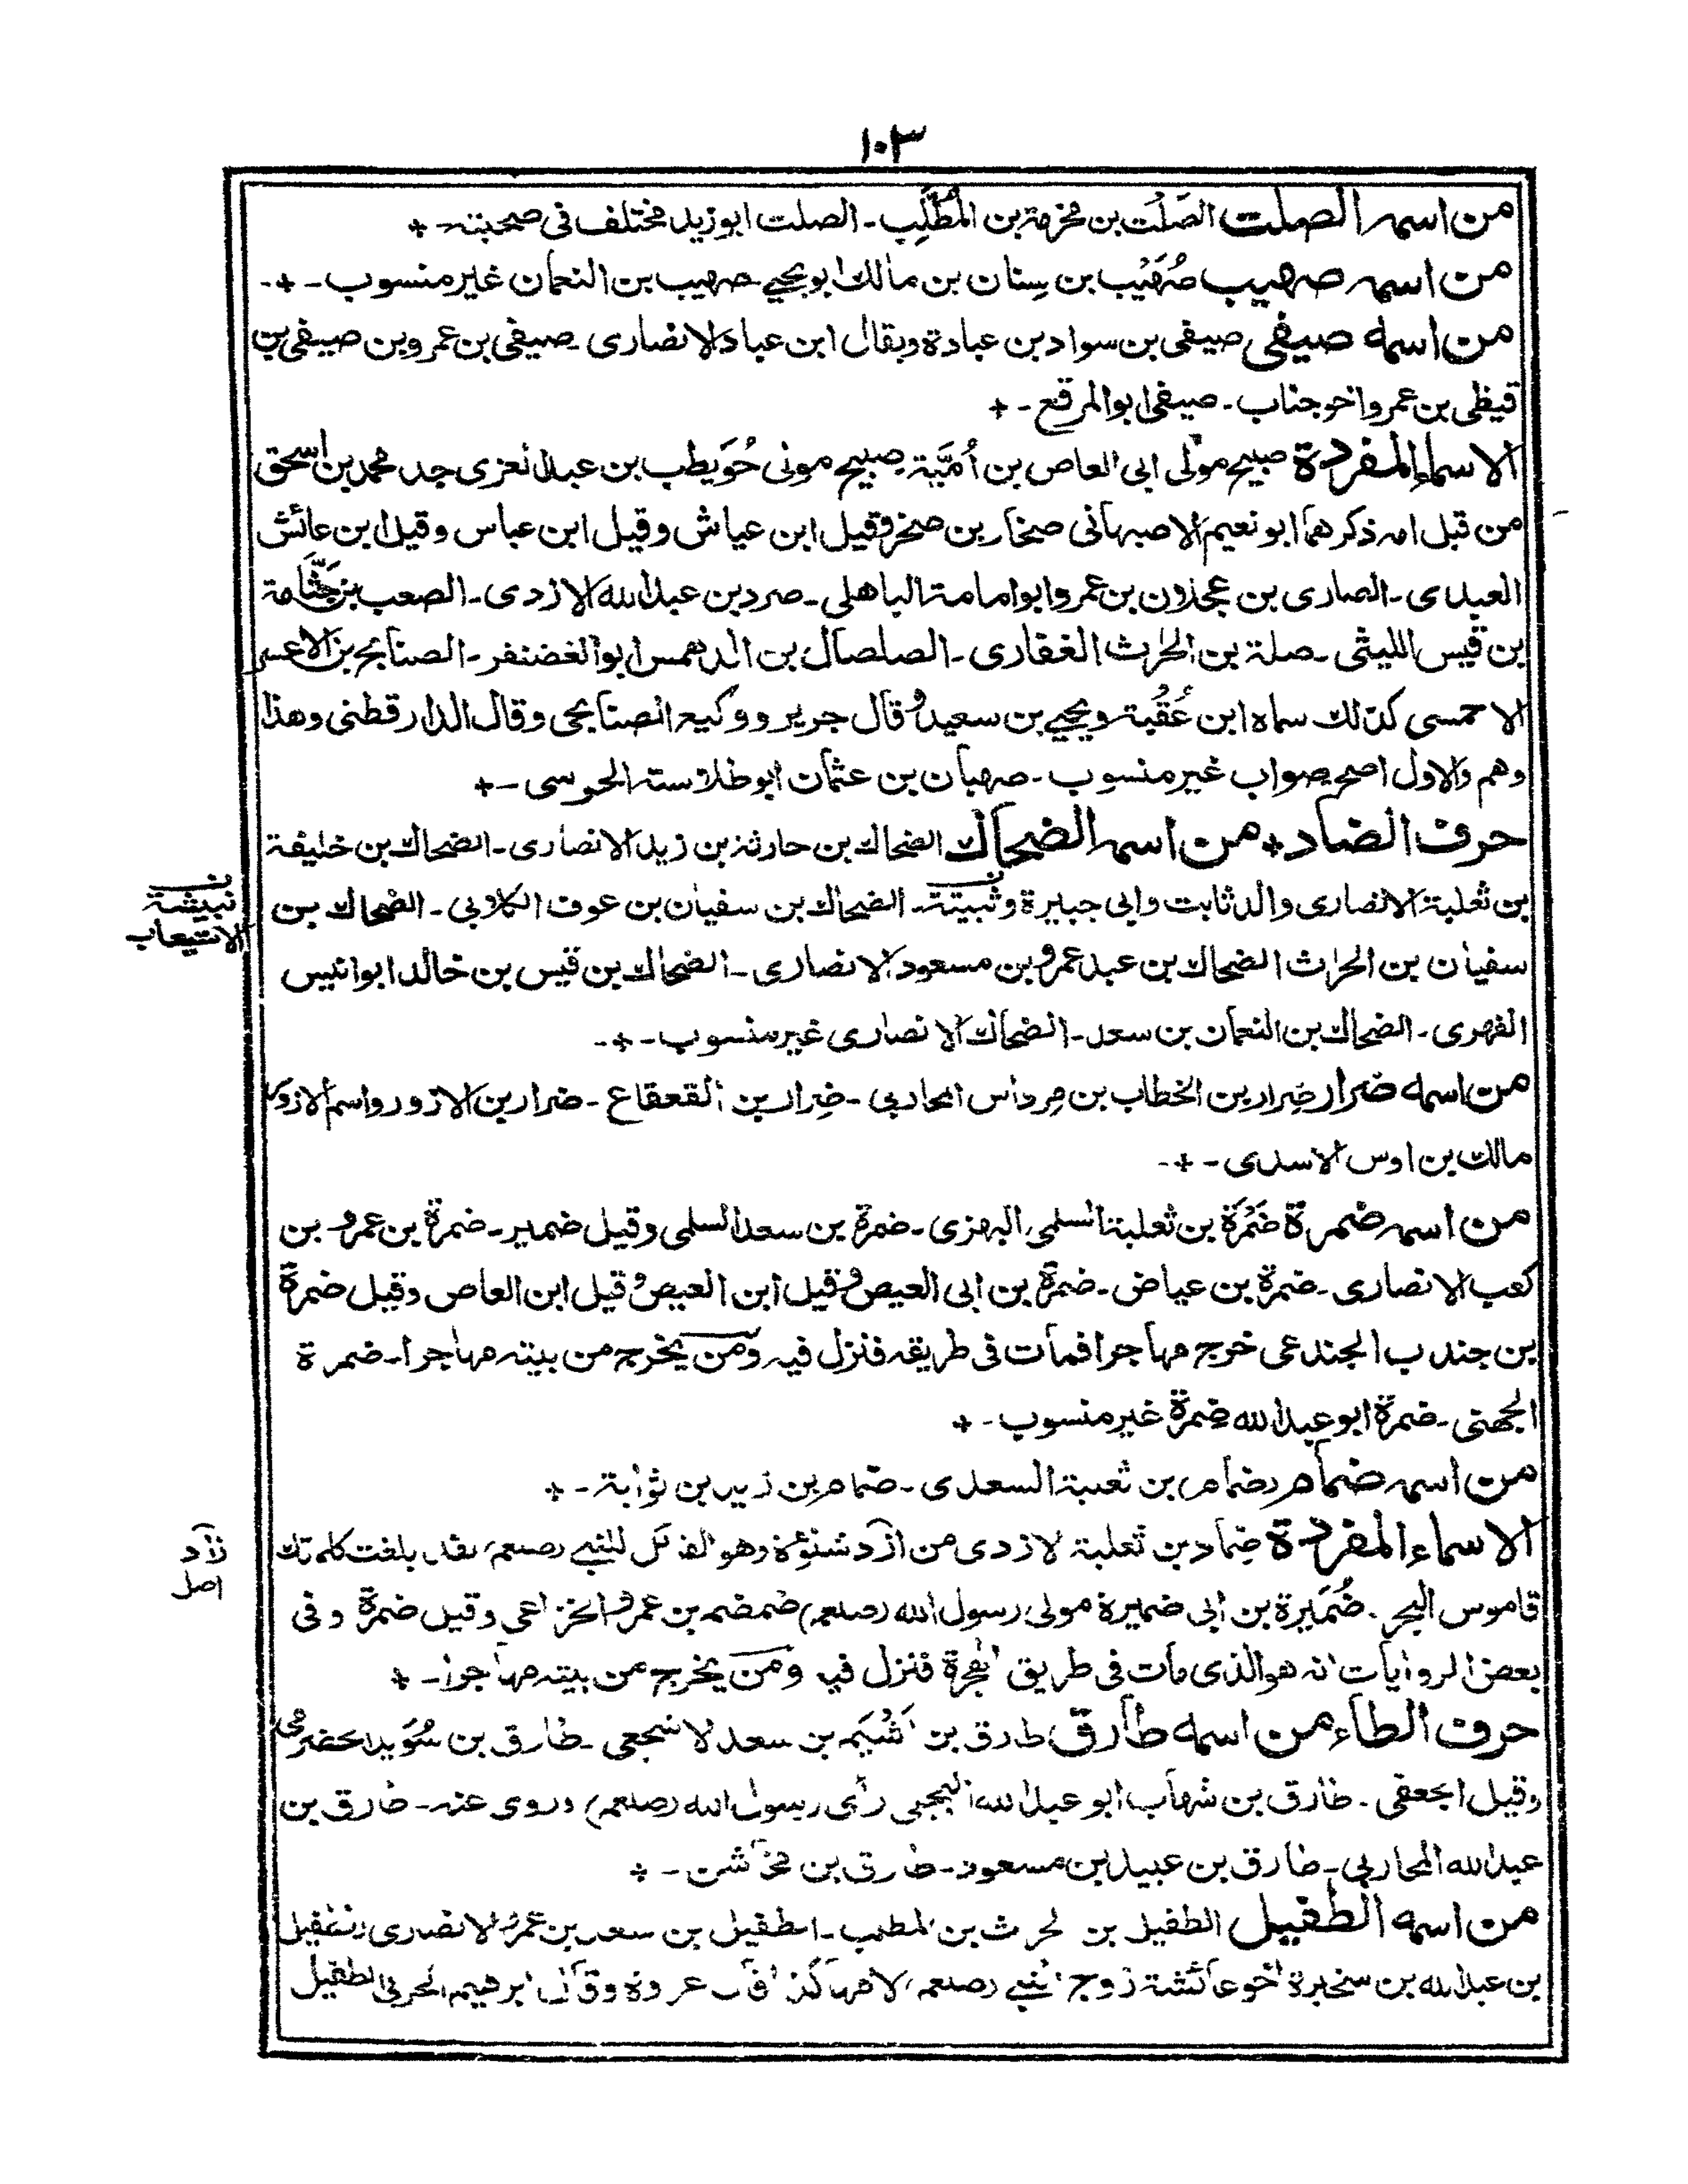 ١٠٣
من اسمه الصلت الصَلْت بن مخرمة بن المُطَّلِب ـ الصلت ابو زيد مختلف فى صحبته ـ +
من اسمه صهيب صُهَيْب بن سِنان بن مالك ابو يحيى ـ صهيب بن النعمان غير منسوب ـ + ـ
من اسمه صيفى صيفى بن سواد بن عبادة ويقال ابن عباد الانصارى ـ صيفى بن عمرو بن صيفى بن
قيظى بن عمرو اخو جناب ـ صيفى ابو المرقع ـ +
الاسماء المفردة صبيح مولى ابى العاص بن اُمَيَّة ـ صبيح مولى حُوَيطب بن عبد العزى جد محمد بن اسحق
من قبل امه ذكرهما ابو نعيم الاصبهانى صحار بن صخر وقيل ابن عياش وقيل ابن عباس وقيل ابن عائش
العبدى ـ الصارى بن عجلان بن عمرو ابو امامة الباهلى ـ صرد بن عبد الله الازدى ـ الصعب بن جَثَّامة
بن قيس الليثى ـ صلة بن الحرث الغفارى ـ الصلصال بن الدهمس ابو الغضنفر ـ الصنابح بن الاعسر
الاحمسى كذلك سماه ابن عُقْبة ويحيى بن سعيد وقال جرير ووكيع الصنابحى وقال الدارقطنى وهذا
وهم والاول اصح صواب غير منسوب ـ صهبان بن عثمان ابو طلاسة الحرسى ـ +
حرف الضاد + من اسمه الضحاك الضحاك بن حارثة بن زيد الانصارى ـ الضحاك بن خليفة
بن ثعلبة الانصارى والد ثابت وابى جبيرة وثبيتة ـ الضحاك بن سفيان بن عوف الكلابى ـ الضحاك بن
نبيشة
الاستيعاب
سفيان بن الحراث الضحاك بن عبد عمرو بن مسعود الانصارى ـ الضحاك بن قيس بن خالد ابو انيس
الفهرى ـ الضحاك بن النعمان بن سعد ـ الضحاك الانصارى غير منسوب ـ + ـ
من اسمه ضرار ضِرار بن الخطاب بن مِرداس المحاربى ـ ضِرار بن القعقاع ـ ضرار بن الازور واسم الازور
مالك بن اوس الاسدى ـ + ـ
من اسمه ضمرة ضَمْرَة بن ثعلبة السلمى البهزى ـ ضمرة بن سعد السلمى وقيل ضمير ـ ضمرة بن عمرو بن
كعب الانصارى ـ ضمرة بن عياض ـ ضمرة بن ابى العيص وقيل ابن العيص وقيل ابن العاص وقيل ضمرة
بن جندب الجندعى خرج مهاجرا فمات فى طريقه فنزل فيه ومن يخرج من بيته مهاجرا ـ ضمرة
الجهنى ـ ضمرة ابو عبد الله ضمرة غير منسوب ـ +
من اسمه ضمام (ضمام) بن ثعلبة السعدى ـ ضمام بن زيد بن ثوابة ـ +
الاسماء المفردة ضِماد بن ثعلبة الازدى من ازد شنوءة وهو القائل للنبى (صلعم) لقد بلغت كلماتك
زاد
اصل
قاموس البحر ـ ضُمَيرة بن ابى ضميرة مولى رسول الله (صلعم) ضمضم بن عمرو الخزاعى وقيل ضمرة وفى
بعض الروايات انه هو الذى مات فى طريق الهجرة فنزل فيه ومن يخرج من بيته مهاجرا ـ +
حرف الطاء من اسمه طارق طارق بن اَشْيَم بن سعد الاشجعى ـ طارق بن سُوَيد الحضرمى
وقيل الجعفى ـ طارق بن شهاب ابو عبد الله البجلى رأى رسول الله (صلعم) وروى عنه ـ طارق بن
عبد الله المحاربى ـ طارق بن عبيد بن مسعود ـ طارق بن مخاشن ـ +
من اسمه الطفيل الطفيل بن الحرث بن المطلب ـ الطفيل بن سعد بن عمرو الانصارى الطفيل
بن عبد الله بن سخبرة اخو عائشة زوج النبى (صلعم) لامها كذا قال عروة وقال ابرهيم الحربى الطفيل